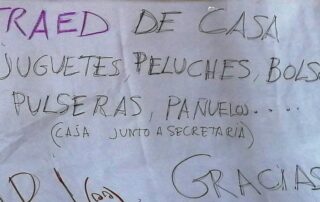 TRAED DE CASA
JUGUETES, PELUCHES, BOLS
PULSERAS, PAÑUELOS.....
(CAJA JUNTO A SECRETARIA)
GRACIAS